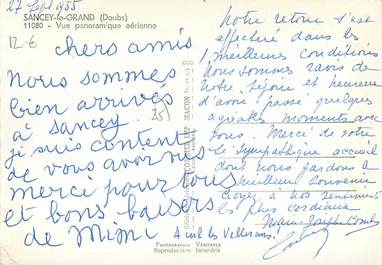 27 Sept 1955
SANCEY-le-GRAND (Doubs)
11080 - Vue panoramique aérienne
12 €
chers amis
Nous sommes
bien arrivés
à Sancey.
je suis content
de vous avoir vus
merci pour tous
et bons baisers
de Mimi
25
MACON
Notre retour s'est
effectué dans les
meilleures conditions
Nous sommes ravis de
notre séjour et heureux
d'avoir passé quelques
agréables moments avec
vous. Merci de votre
si sympathique accueil
dont nous gardons le
meilleur souvenir
Croyez à nos sentiments
les plus cordiaux
Marie Josèphe
Amit les Vellerans!
Photographie Véritable
Reproduction Interdite